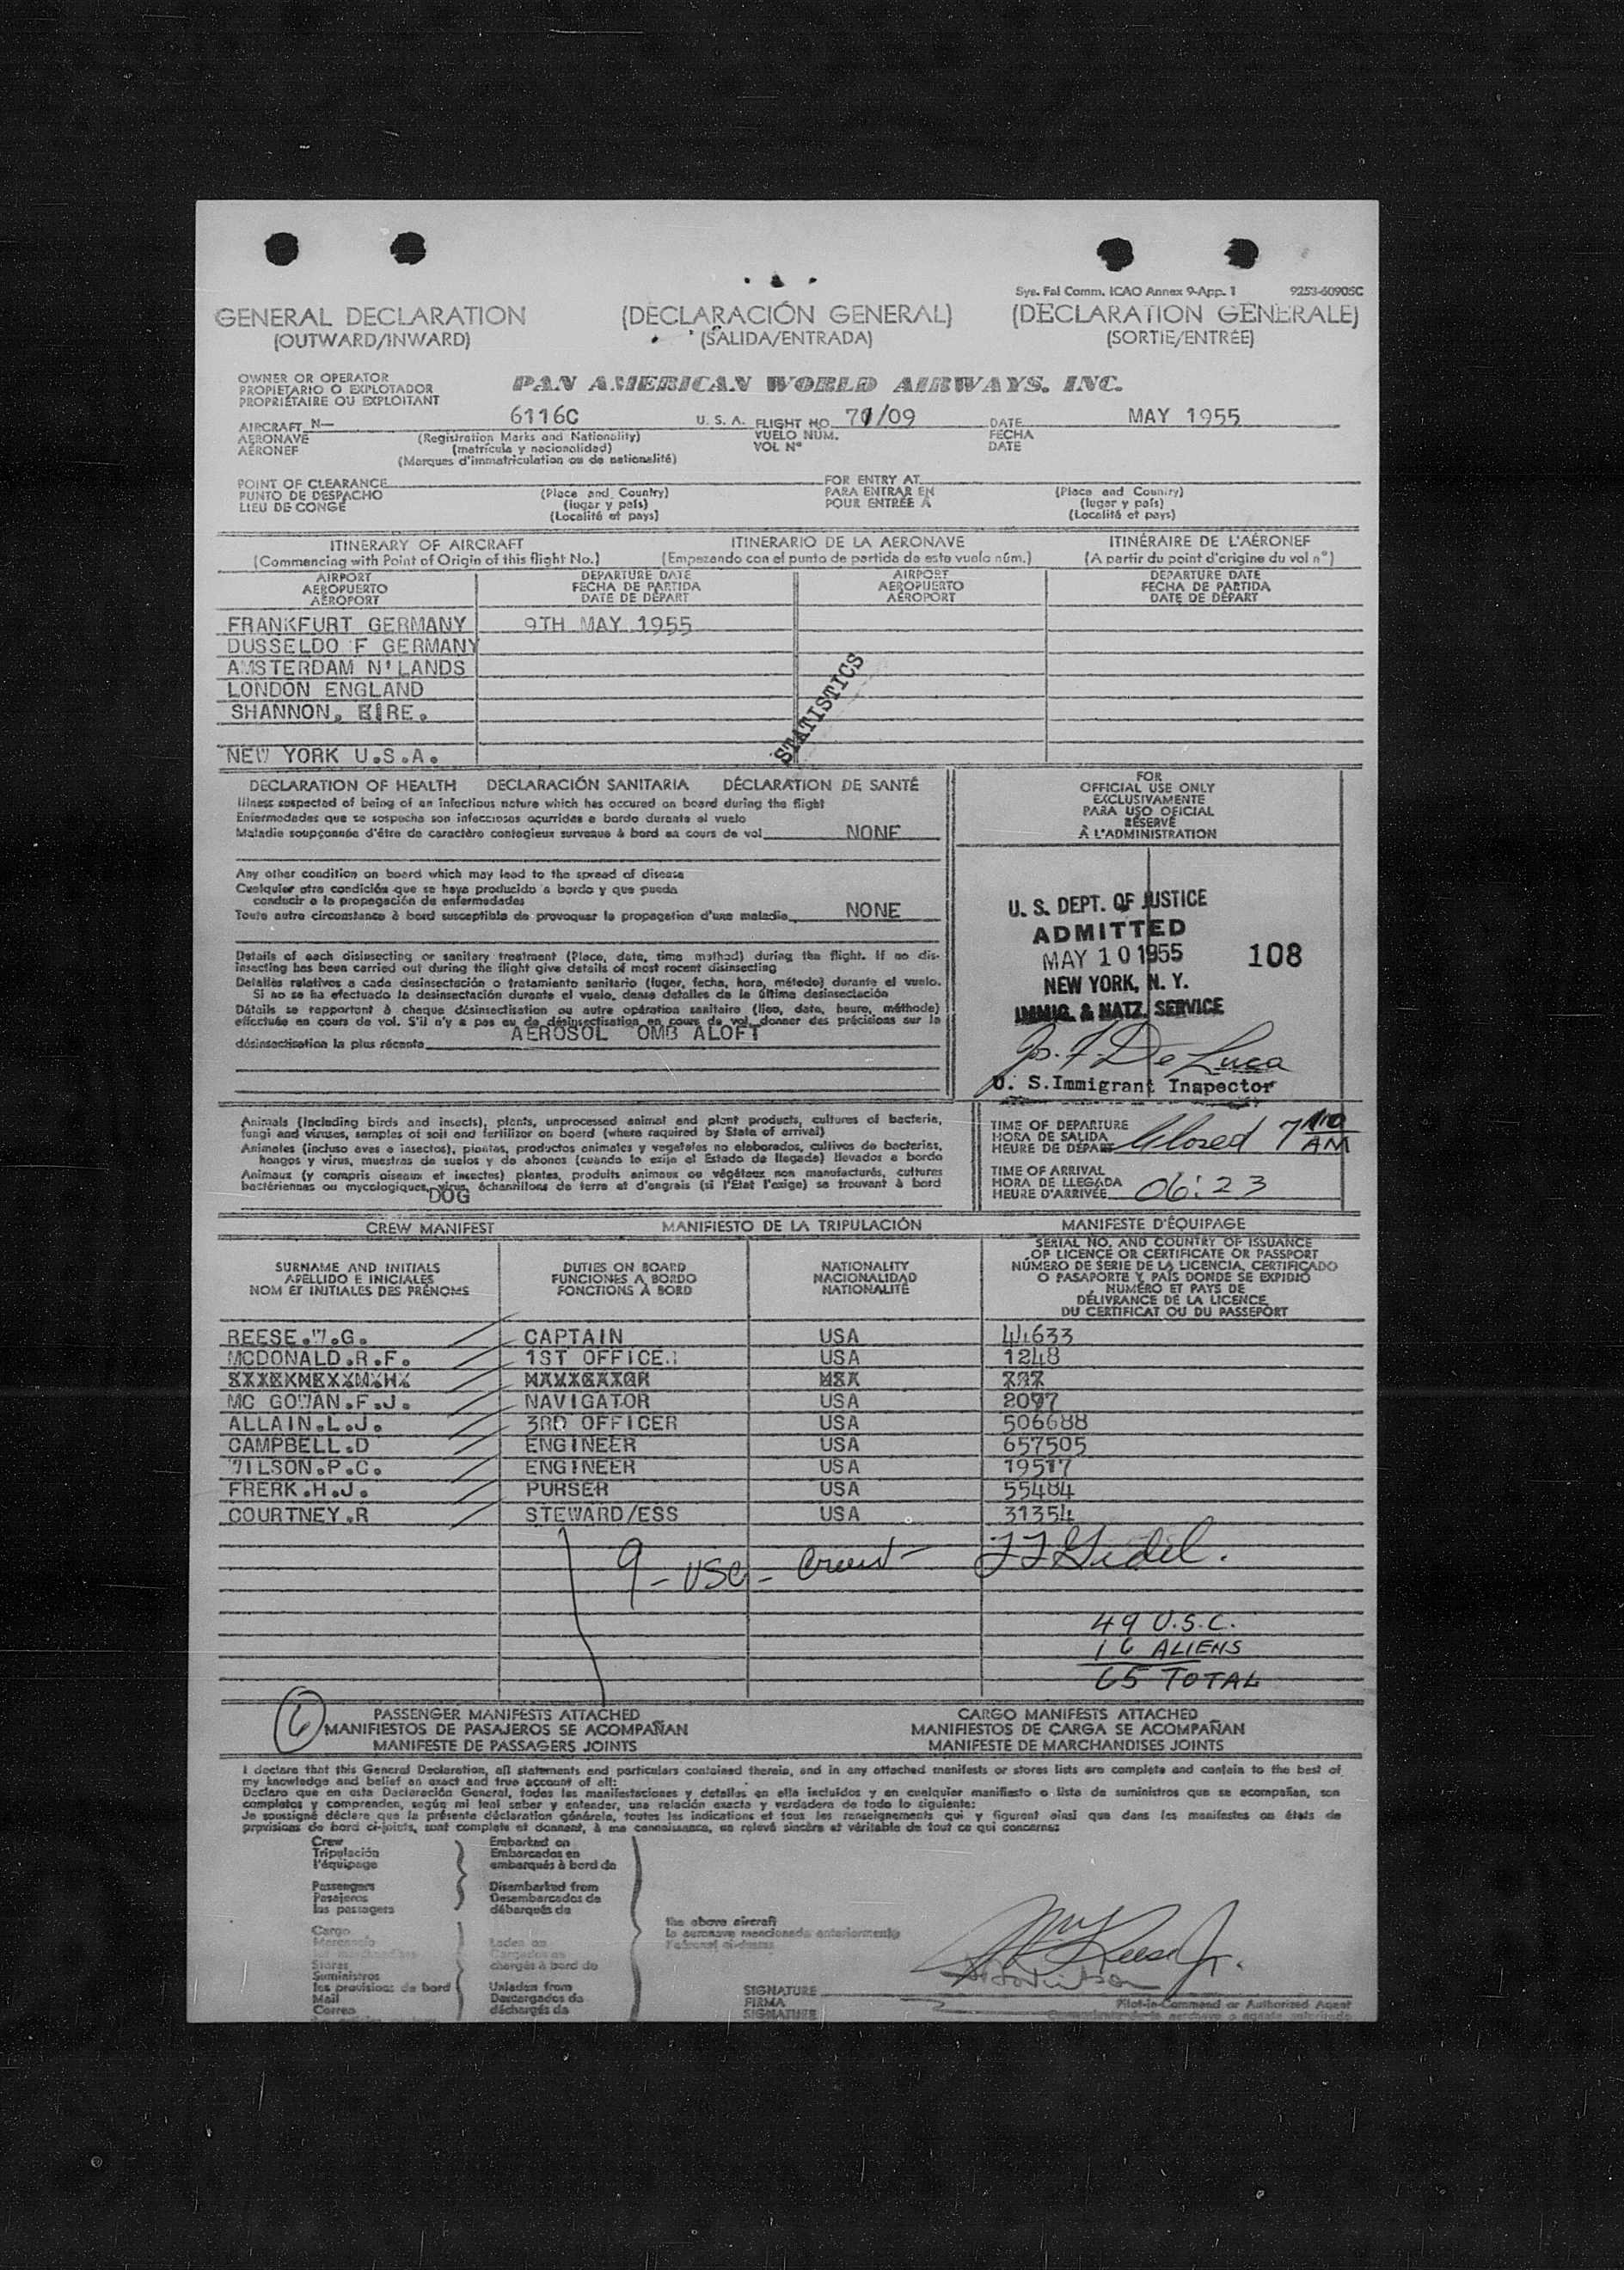 Sys. Fal Comm. ICAO Annex 9-App. 1 9253-60905C
GENERAL DECLARATION (DECLARACIÓN GENERAL) (DECLARATION GENERALE)
(OUTWARD/INWARD) (SALIDA/ENTRADA) (SORTIE/ENTRÉE)
OWNER OR OPERATOR
PROPIETARIO O EXPLOTADOR
PROPRIÉTAIRE OU EXPLOITANT
PAN AMERICAN WORLD AIRWAYS, INC.
AIRCRAFT N— 6116C U. S. A. FLIGHT NO. 71/09 DATE MAY 1955
AERONAVE (Registration Marks and Nationality) VUELO NÚM. FECHA
AÉRONEF (matrícula y nacionalidad) VOL Nº DATE
(Marques d'immatriculation ou de nationalité)
POINT OF CLEARANCE FOR ENTRY AT
PUNTO DE DESPACHO (Place and Country) PARA ENTRAR EN (Place and Country)
LIEU DE CONGÉ (lugar y país) POUR ENTRÉE À (lugar y país)
(Localité et pays) (Localité et pays)
ITINERARY OF AIRCRAFT ITINERARIO DE LA AERONAVE ITINÉRAIRE DE L'AÉRONEF
(Commencing with Point of Origin of this flight No.) (Empezando con el punto de partida de este vuelo núm.) (A partir du point d'origine du vol nº)
AIRPORT DEPARTURE DATE AIRPORT DEPARTURE DATE
AEROPUERTO FECHA DE PARTIDA AEROPUERTO FECHA DE PARTIDA
AÉROPORT DATE DE DÉPART AÉROPORT DATE DE DÉPART
FRANKFURT GERMANY 9TH MAY 1955
DUSSELDO F GERMANY
AMSTERDAM N'LANDS
LONDON ENGLAND
SHANNON. EIRE.
STATISTICS
NEW YORK U.S.A.
DECLARATION OF HEALTH DECLARACIÓN SANITARIA DÉCLARATION DE SANTÉ
Illness suspected of being of an infectious nature which has occured on board during the flight
Enfermedades que se sospecha son infecciosas ocurridas a bordo durante el vuelo
Maladie soupçonnée d'être de caractère contagieux survenue à bord au cours de vol NONE
Any other condition on board which may lead to the spread of disease
Cualquier otra condición que se haya producido a bordo y que pueda
conducir a la propagación de enfermedades
Toute autre circonstance à bord susceptible de provoquer la propagation d'une maladie NONE
Details of each disinsecting or sanitary treatment (Place, date, time method) during the flight. If no dis-
insecting has been carried out during the flight give details of most recent disinsecting
Detalles relativos a cada desinsectación o tratamiento sanitario (lugar, fecha, hora, método) durante el vuelo.
Si no se ha efectuado la desinsectación durante el vuelo, dense detalles de la última desinsectación
Détails se rapportant à chaque désinsectisation ou autre opération sanitaire (lieu, date, heure, méthode)
effectuée en cours de vol. S'il n'y a pas eu de désinsectisation en cours de vol, donner des précisions sur la
désinsectisation la plus récente AEROSOL OMB ALOFT
FOR
OFFICIAL USE ONLY
EXCLUSIVAMENTE
PARA USO OFICIAL
RÉSERVÉ
À L'ADMINISTRATION
U. S. DEPT. OF JUSTICE
ADMITTED
MAY 10 1955 108
NEW YORK, N. Y.
IMMIG. & NATZ. SERVICE
Jos. F. De Luca
U. S. Immigrant Inspector
Animals (Including birds and insects), plants, unprocessed animal and plant products, cultures of bacteria,
fungi and viruses, samples of soil and fertilizer on board (where required by State of arrival)
Animales (incluso aves e insectos), plantas, productos animales y vegetales no elaborados, cultivos de bacterias,
hongos y virus, muestras de suelos y de abonos (cuando lo exija el Estado de llegada) llevados a bordo
Animaux (y compris oiseaux et insectes) plantes, produits animaux ou végétaux non manufacturés, cultures
bactériennes ou mycologiques, virus, échantillons de terre et d'engrais (si l'État l'exige) se trouvant à bord
DOG
TIME OF DEPARTURE
HORA DE SALIDA
HEURE DE DÉPART Closed 7 10 AM
TIME OF ARRIVAL
HORA DE LLEGADA
HEURE D'ARRIVÉE 06:23
CREW MANIFEST MANIFIESTO DE LA TRIPULACIÓN MANIFESTE D'ÉQUIPAGE
SURNAME AND INITIALS DUTIES ON BOARD NATIONALITY
APELLIDO E INICIALES FUNCIONES A BORDO NACIONALIDAD
NOM ET INITIALES DES PRÉNOMS FONCTIONS À BORD NATIONALITÉ
SERIAL NO. AND COUNTRY OF ISSUANCE
OF LICENCE OR CERTIFICATE OR PASSPORT
NÚMERO DE SERIE DE LA LICENCIA, CERTIFICADO
O PASAPORTE Y PAÍS DONDE SE EXPIDIÓ
NUMÉRO ET PAYS DE
DÉLIVRANCE DE LA LICENCE,
DU CERTIFICAT OU DU PASSEPORT
REESE.W.G. CAPTAIN USA 44633
MCDONALD.R.F. 1ST OFFICE. USA 1248
MC GOWAN.F.J. NAVIGATOR USA 2097
ALLAIN.L.J. 3RD OFFICER USA 506688
CAMPBELL.D ENGINEER USA 657505
WILSON.P.C. ENGINEER USA 19517
FRERK.H.J. PURSER USA 55484
COURTNEY.R STEWARD/ESS USA 31354
9 - USC - Crew -
49 U.S.C.
16 ALIENS
65 TOTAL
6
PASSENGER MANIFESTS ATTACHED CARGO MANIFESTS ATTACHED
MANIFIESTOS DE PASAJEROS SE ACOMPAÑAN MANIFIESTOS DE CARGA SE ACOMPAÑAN
MANIFESTE DE PASSAGERS JOINTS MANIFESTE DE MARCHANDISES JOINTS
I declare that this General Declaration, all statements and particulars contained therein, and in any attached manifests or stores lists are complete and contain to the best of
my knowledge and belief an exact and true account of all:
Declaro que en esta Declaración General, todas las manifestaciones y detalles en ella incluidos y en cualquier manifiesto o lista de suministros que se acompañan, son
completos y comprenden, según mi leal saber y entender, una relación exacta y verdadera de todo lo siguiente:
Je soussigné déclare que la présente déclaration générale, toutes les indications et tous les renseignements qui y figurent ainsi que dans les manifestes ou états de
provisions de bord ci-joints, sont complets et donnent, à ma connaissance, un relevé sincère et véritable de tout ce qui concerne:
Crew Embarked on
Tripulación Embarcados en
l'équipage embarqués à bord de
Passengers Disembarked from
Pasajeros Desembarcados de
les passagers débarqués de
the above aircraft
la aeronave mencionada anteriormente
l'aéronef ci-dessus
Cargo
Mercancía Laden on
les marchandises Cargados en
Stores chargés à bord de
Suministros
les provisions de bord Unladen from
Mail Descargados de
Correo déchargés de
SIGNATURE
FIRMA
SIGNATURE
Pilot-in-Command or Authorized Agent